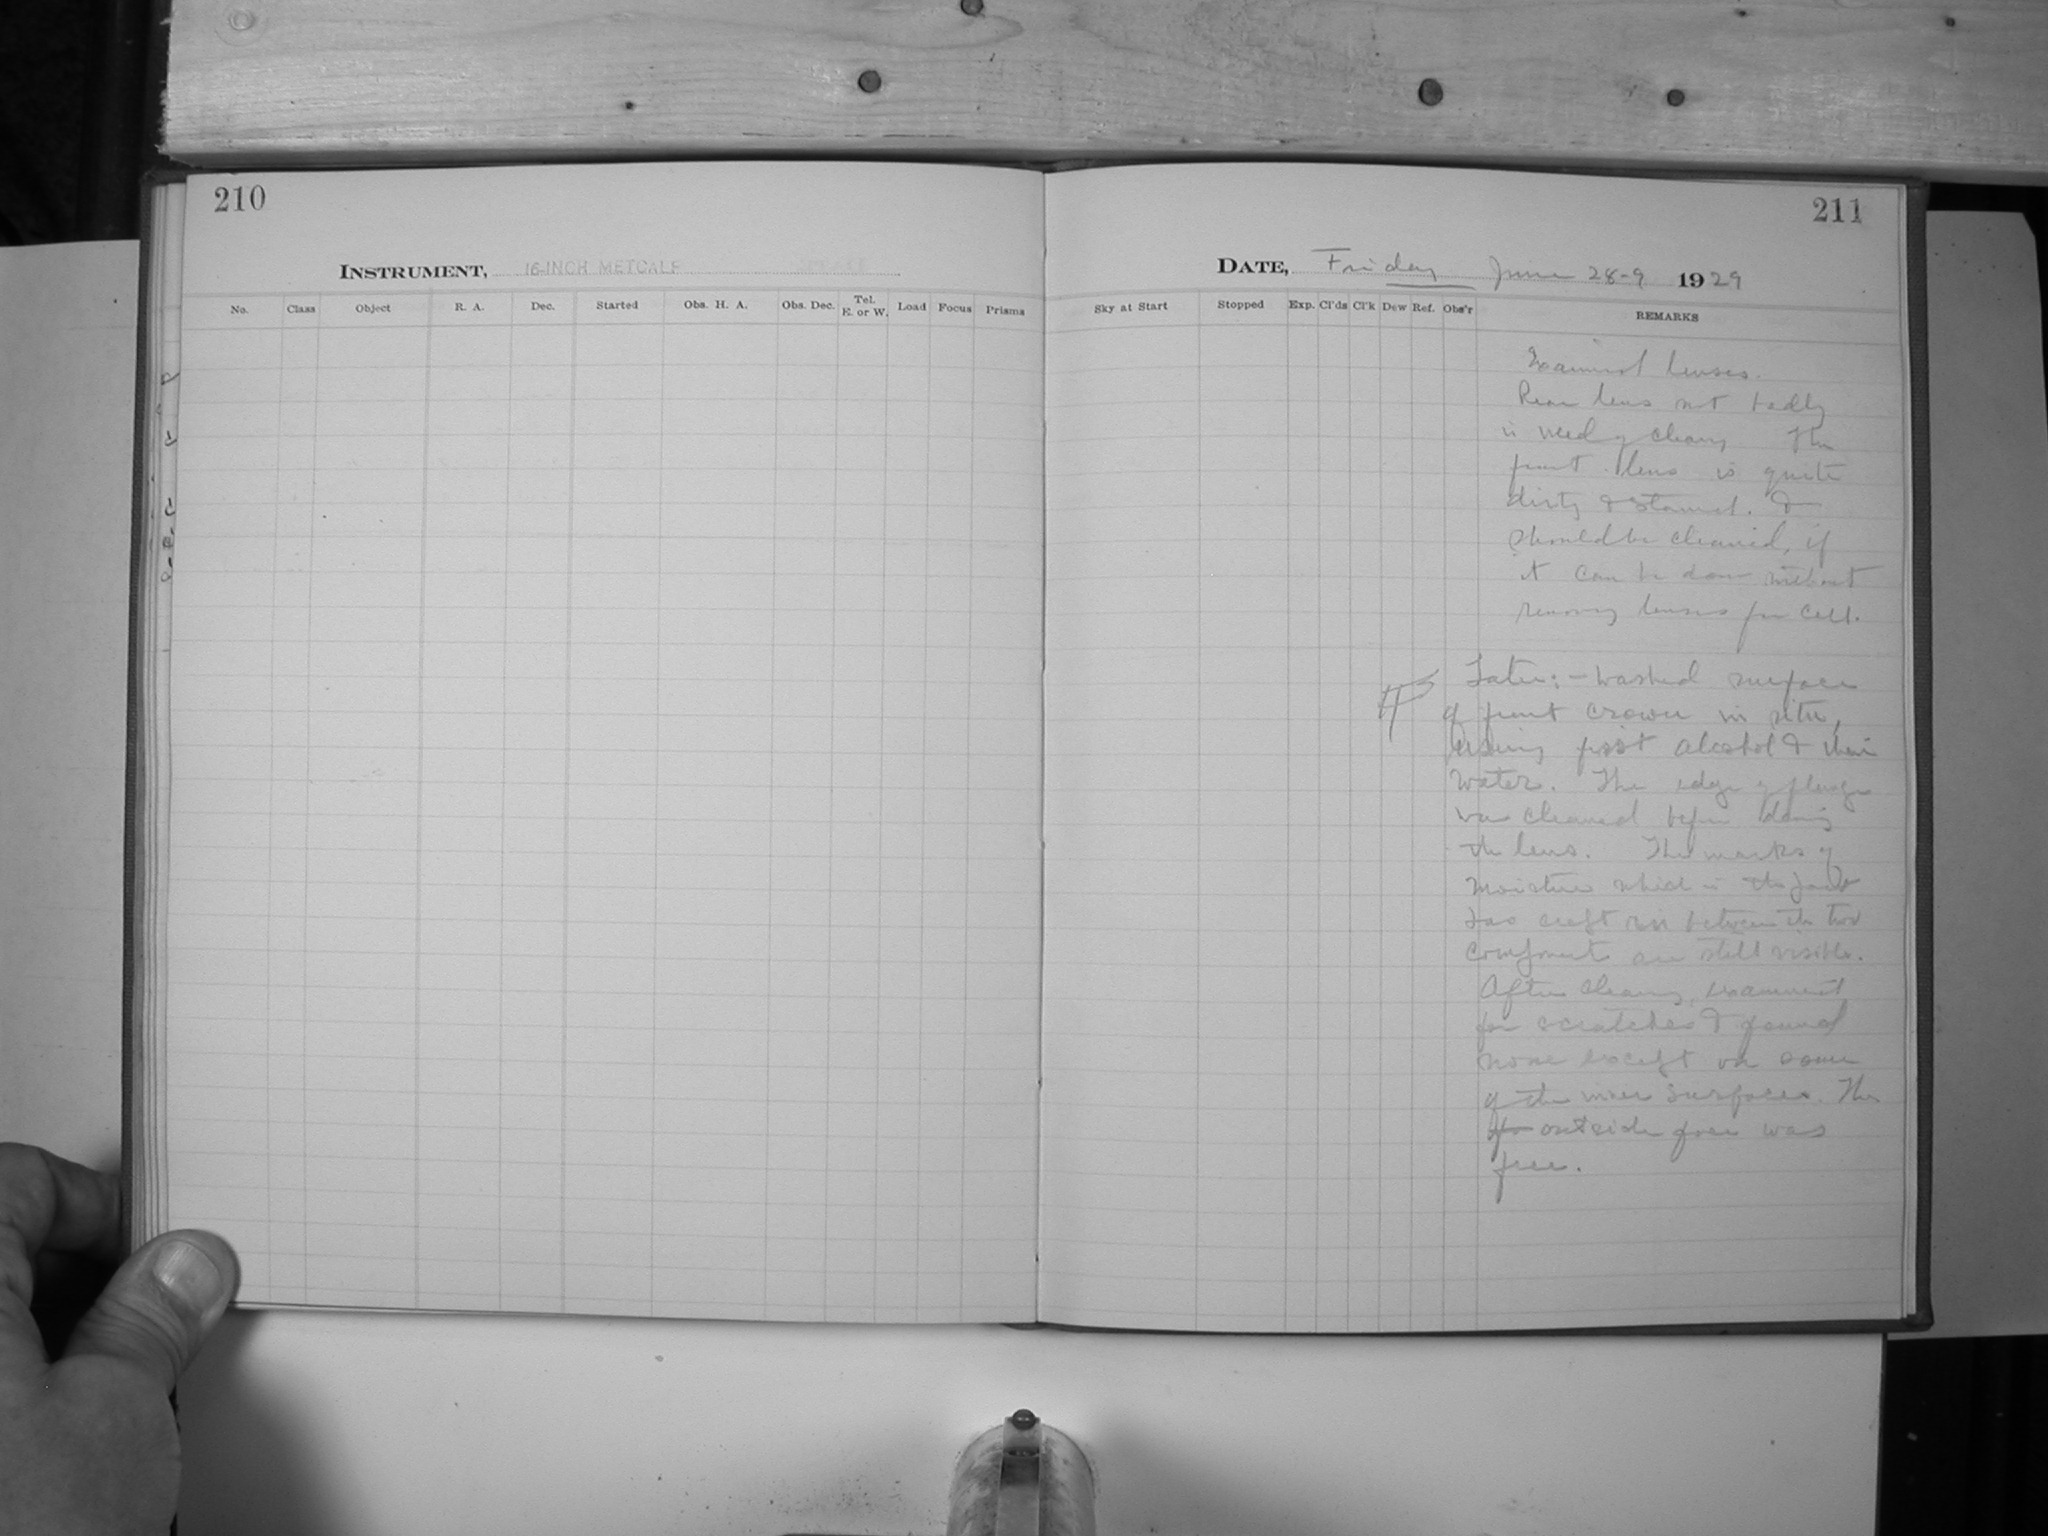 210
INSTRUMENT, 16-INCH METCALF
No. Class Object R. A. Dec. Started Obs. H. A. Obs. Dec. Tel. E. or W. Load Focus Prisms
211
DATE, Friday June 28-9 1929
Sky at Start Stopped Exp. Cl'ds Cl'k Dew Ref. Obs'r REMARKS
Examined lenses.
Rear lens not badly
in need of cleaning The
front lens is quite
dirty & stained. &
should be cleaned, if
it can be done without
removing lenses from cell.
Later:- washed surface
of front crown in situ,
using first alcohol & then
water. The edge of flange
was cleaned before doing
the lens. The marks of
moisture which in the past
has crept in between the two
components are still visible.
After cleaning, examined
for scratches & found
none except on some
of the inner surfaces. The
outside face was
free.